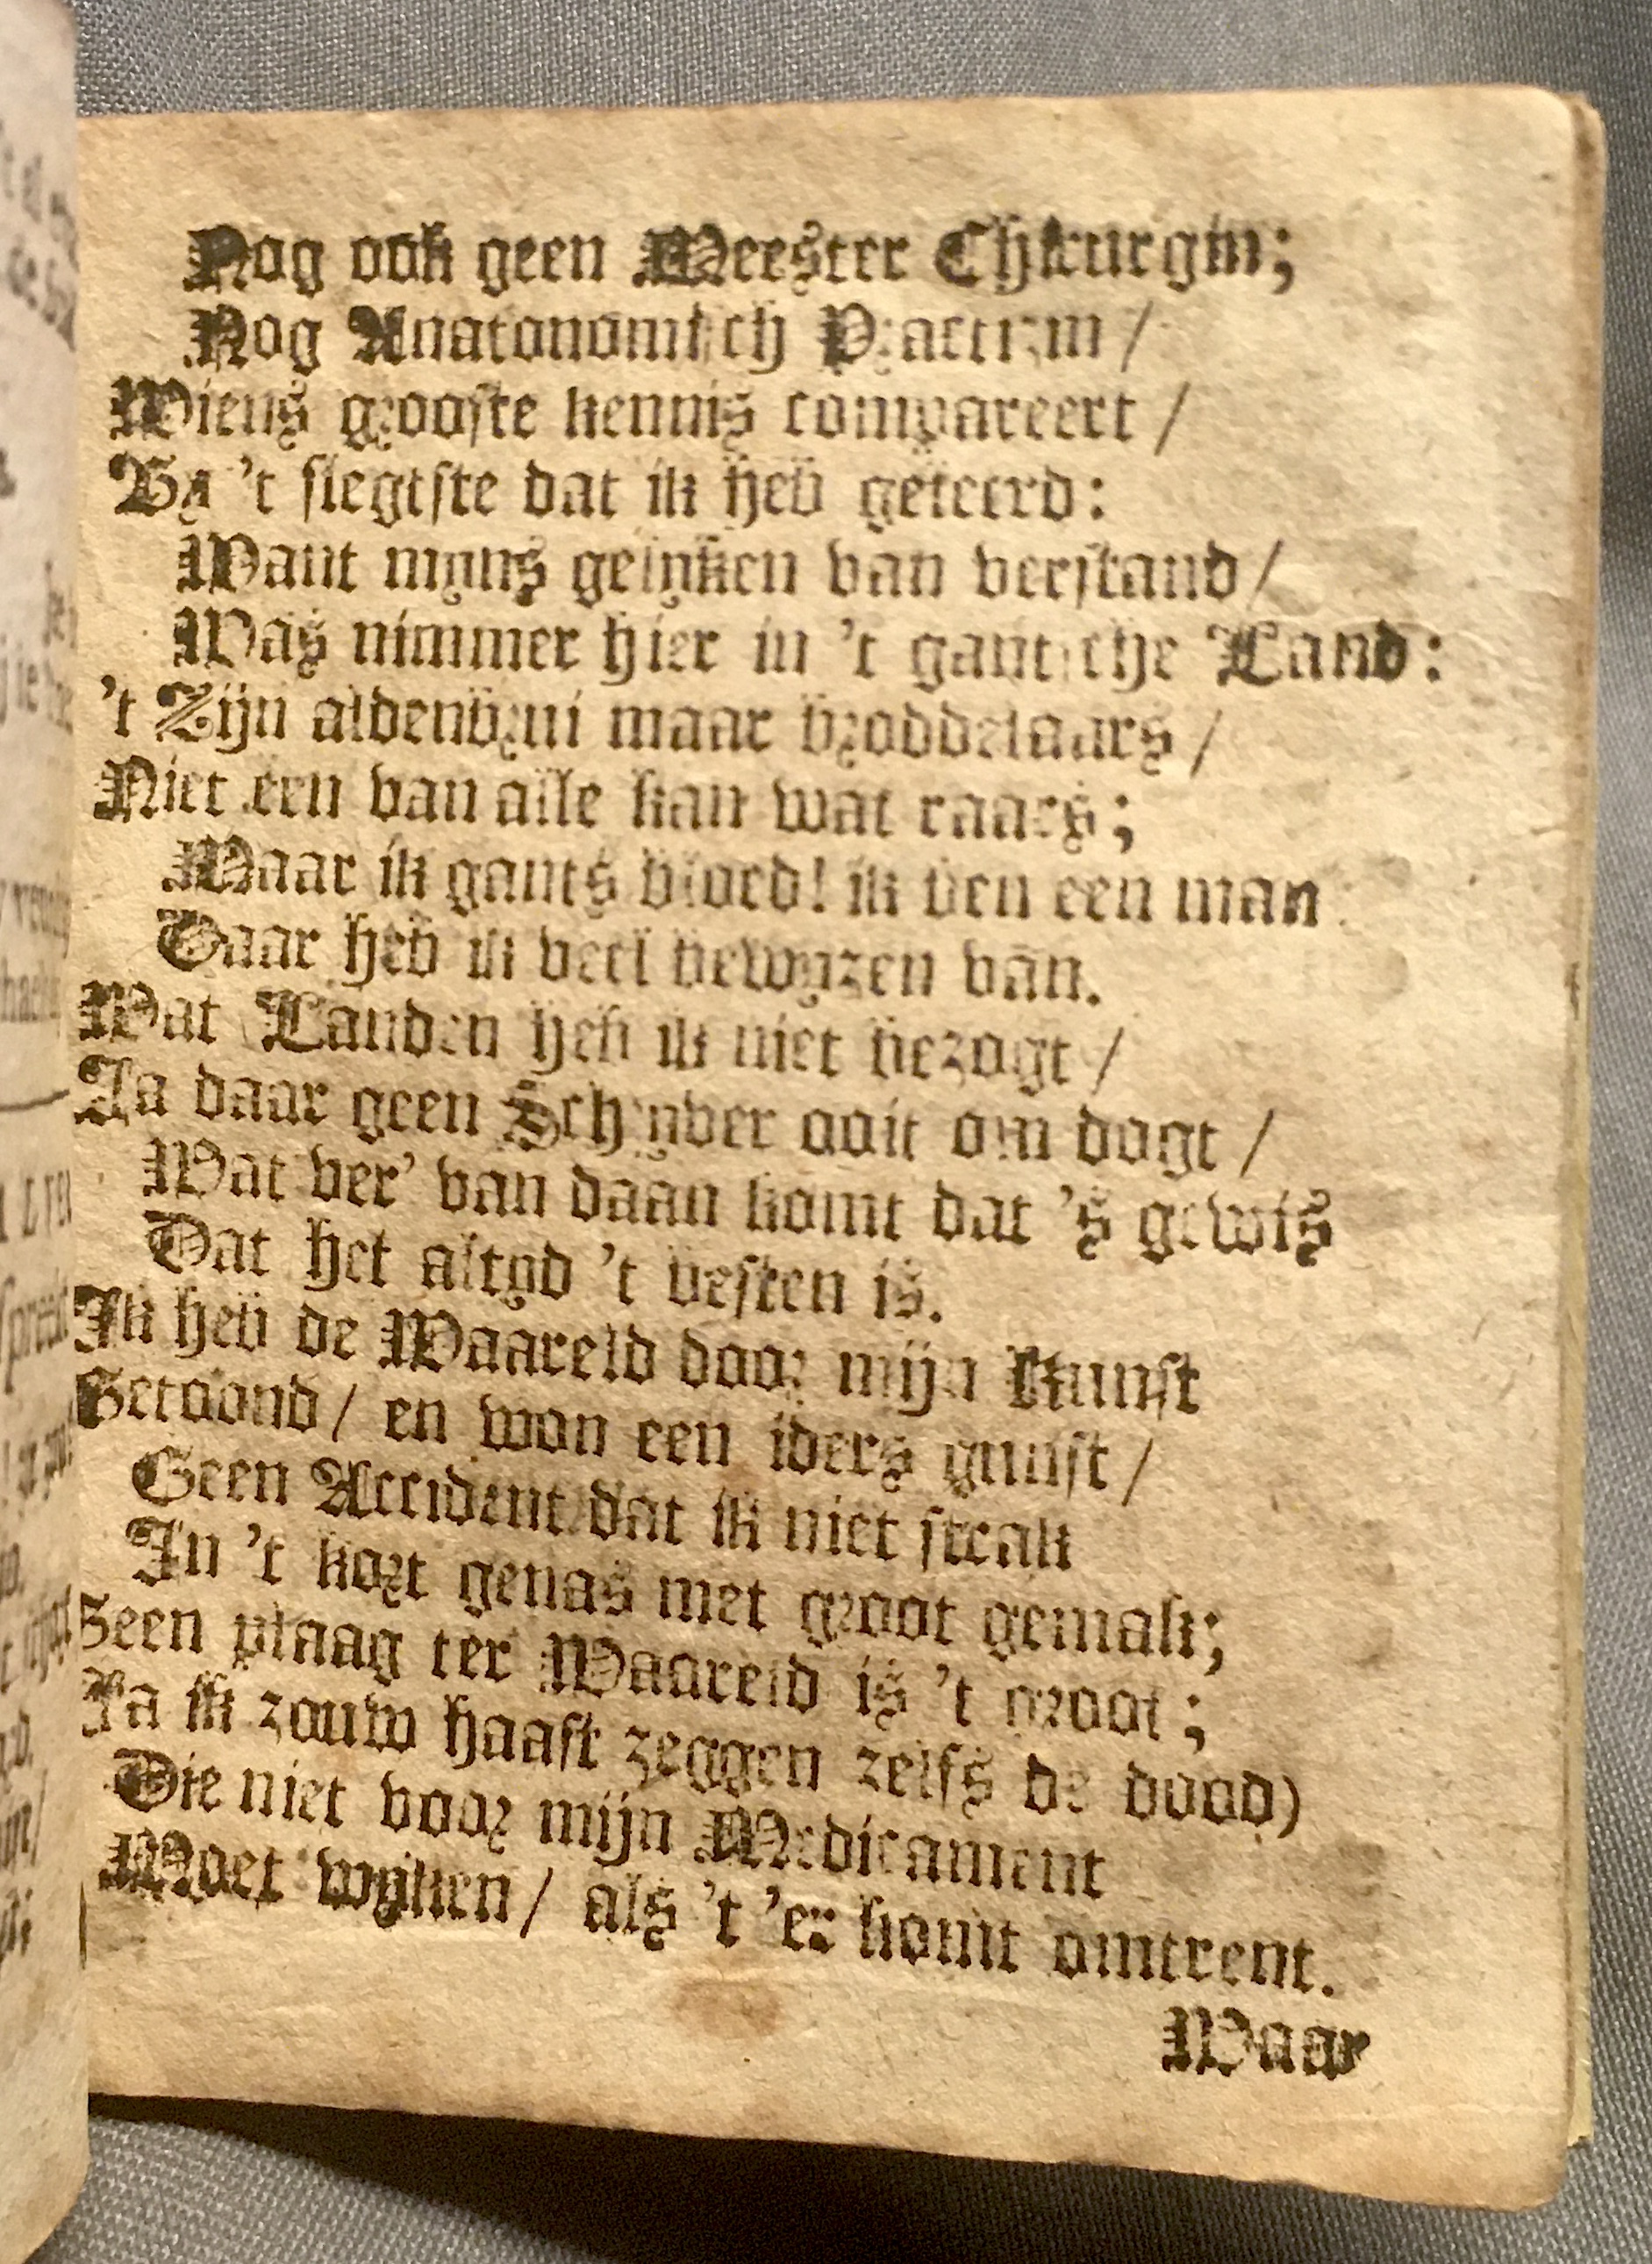 Nog ook geen Meester Chirurgin;
Nog Anatonomisch Practizin /
Wiens grooste kennis compareert /
By 't slegtste dat ik heb geleerd:
Want myns gelyken van verstand /
Was nimmer hier in 't gantsche Land:
't Zijn altemaal maar broddelaars /
Niet een van alle kan wat raars;
Maar ik gants bloed! ik ben een man
Daar heb ik veel bewyzen van.
Wat Landen heb ik niet bezogt /
Ja daar geen Schryver ooit om dogt /
Wat ver' van daan komt dat 's gewis
Dat het altyd 't besten is.
Ik heb de Waareld door mijn Kunst
Geroond / en won een iders gunst /
Geen Accident dat ik niet strak
In 't kort genas met groot gemak;
Geen plaag ter Waareld is 't groot;
Ja ik zouw haast zeggen zelfs de dood)
Die niet voor mijn Medicament
Moet wyken / als 't 'er komt omtrent.
Waar